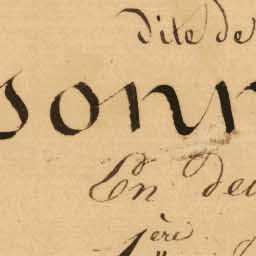 dite de
sonn
En deu
1ère